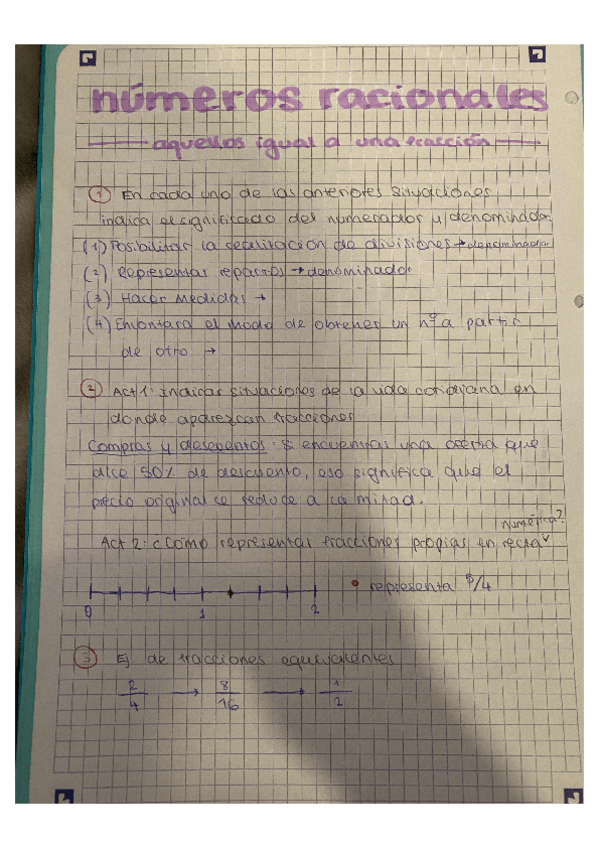 números racionales
aquellos igual a una fracción
① En cada uno de las anteriores situaciones
indica el significado del numerador y denominador
(1) Posibilitar la realización de divisiones → denominador
(2) Representar repartos → denominador
(3) Hacer medidas →
(4) Encontrar el modo de obtener un nº a partir
de otro →
② Act 1: Indicar situaciones de la vida cotidiana en
donde aparezcan fracciones
Compras y descuentos: si encuentras una oferta que
dice 50% de descuento, eso significa que el
precio original se reduce a la mitad.
numérica?
Act 2: ¿Cómo representar fracciones propias en recta
0 1 2
representa 5/4
③ Ej. de fracciones equivalentes
2/4 → 8/16 → 1/2